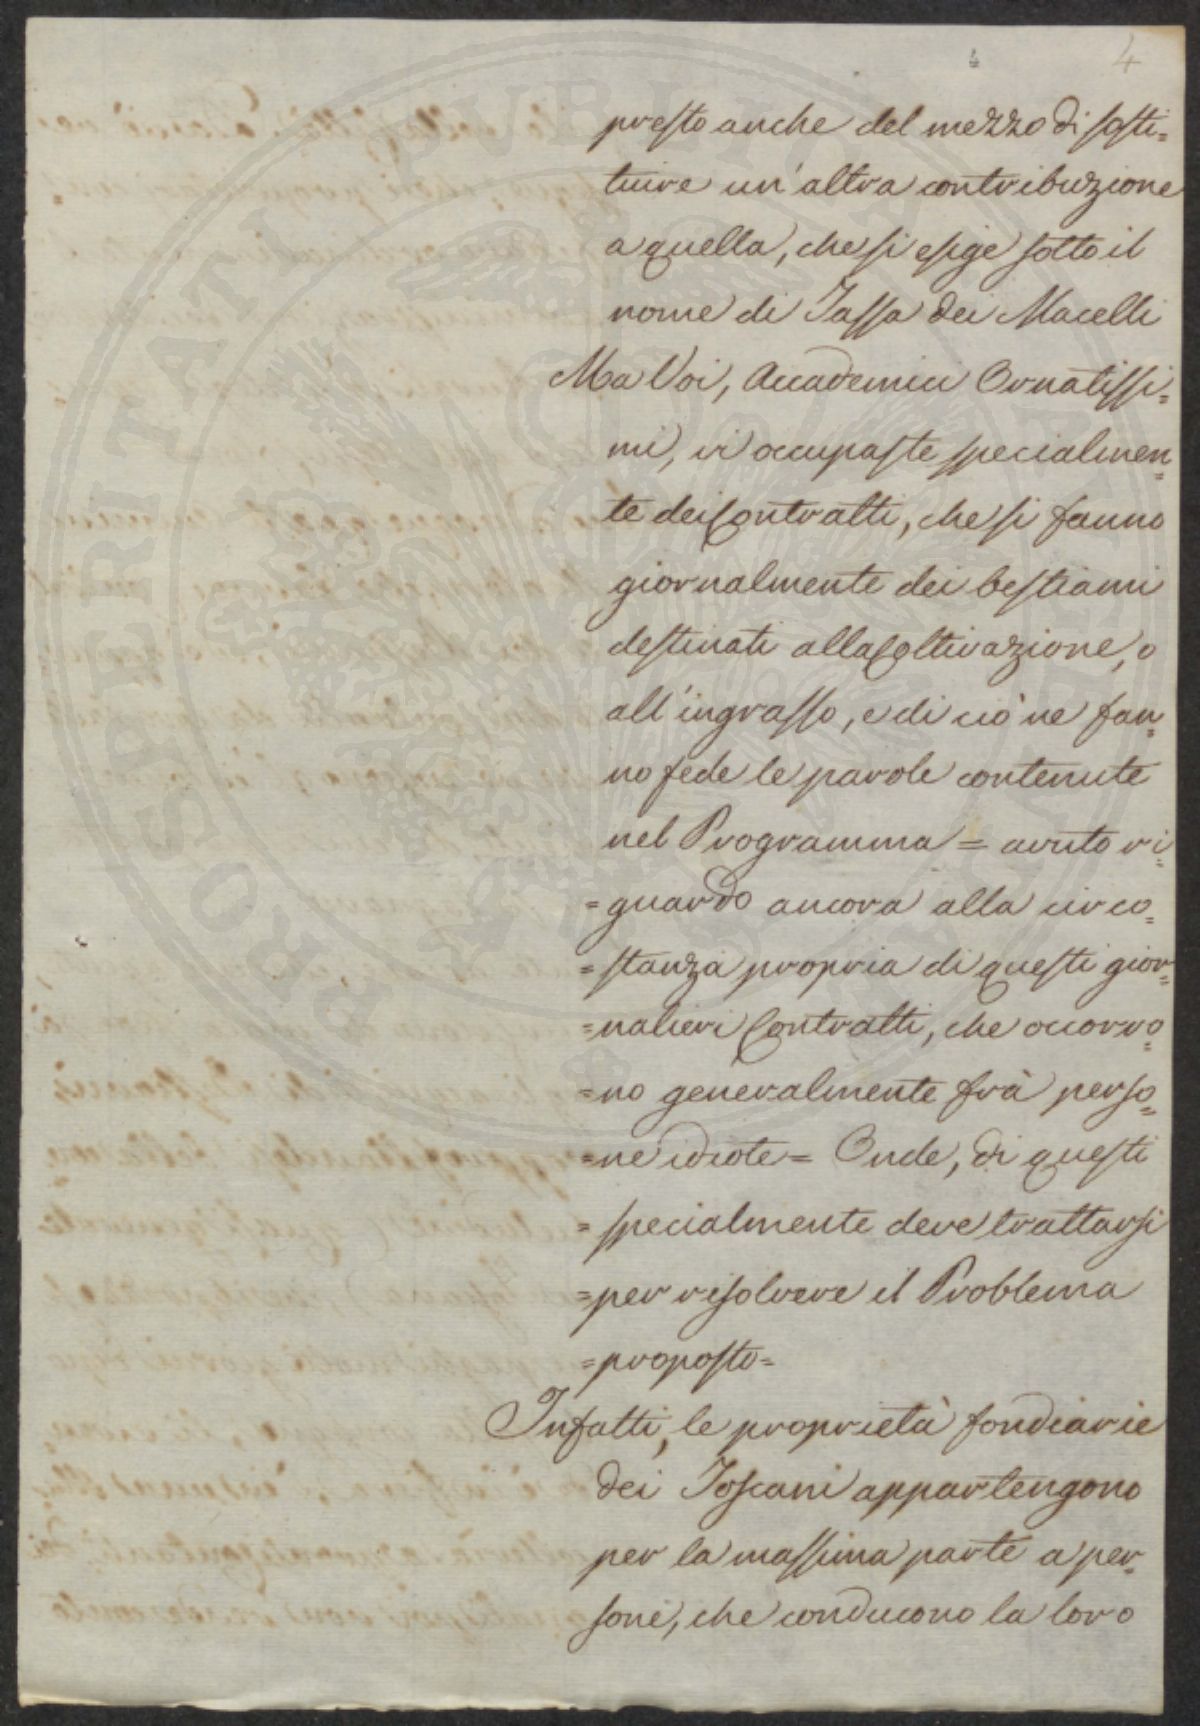 4
presto anche del mezzo di sosti=
tuire un'altra contribuzione
a quella, che si esige sotto il
nome di Tassa dei Macelli
Ma Voi, Accademici Ornatissi=
mi, vi occupaste specialmen=
te dei Contratti, che si fanno
giornalmente dei bestiami
destinati alla Coltivazione, o
all'ingrasso, e di ciò ne fan=
no fede le parole contenute
nel Programma = avuto ri=
=guardo ancora alla circo=
=stanza propria di questi gior=
=nalieri Contratti, che occorro=
=no generalmente frà perso=
=ne idiote = Onde, di questi
=specialmente deve trattarsi
=per risolvere il Problema
=proposto=
Infatti, le proprietà fondiarie
dei Toscani appartengono
per la massima parte a per=
sone, che conducono la loro
PROSPERITATI PUBLICAE